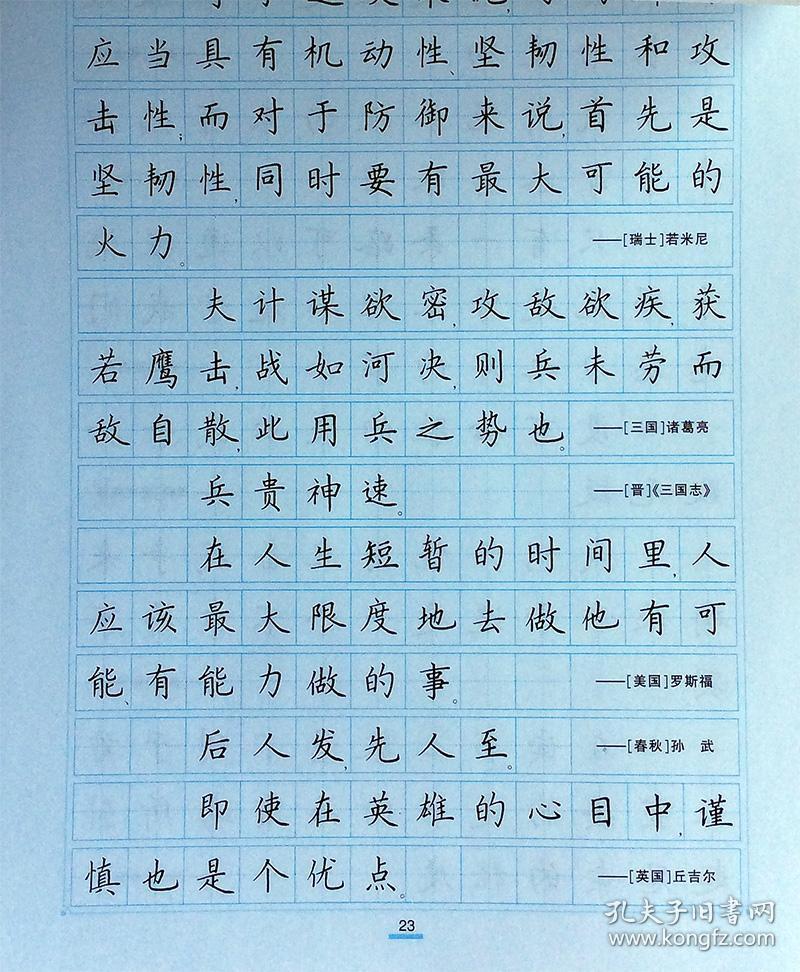 应当具有机动性、坚韧性和攻
击性;而对于防御来说,首先是
坚韧性,同时要有最大可能的
火力。 ——[瑞士]若米尼
夫计谋欲密,攻敌欲疾,获
若鹰击,战如河决,则兵未劳而
敌自散,此用兵之势也。 ——[三国]诸葛亮
兵贵神速。 ——[晋]《三国志》
在人生短暂的时间里,人
应该最大限度地去做他有可
能、有能力做的事。 ——[美国]罗斯福
后人发,先人至。 ——[春秋]孙 武
即使在英雄的心目中,谨
慎也是个优点。 ——[英国]丘吉尔
23
孔夫子旧书网
www.kongfz.com